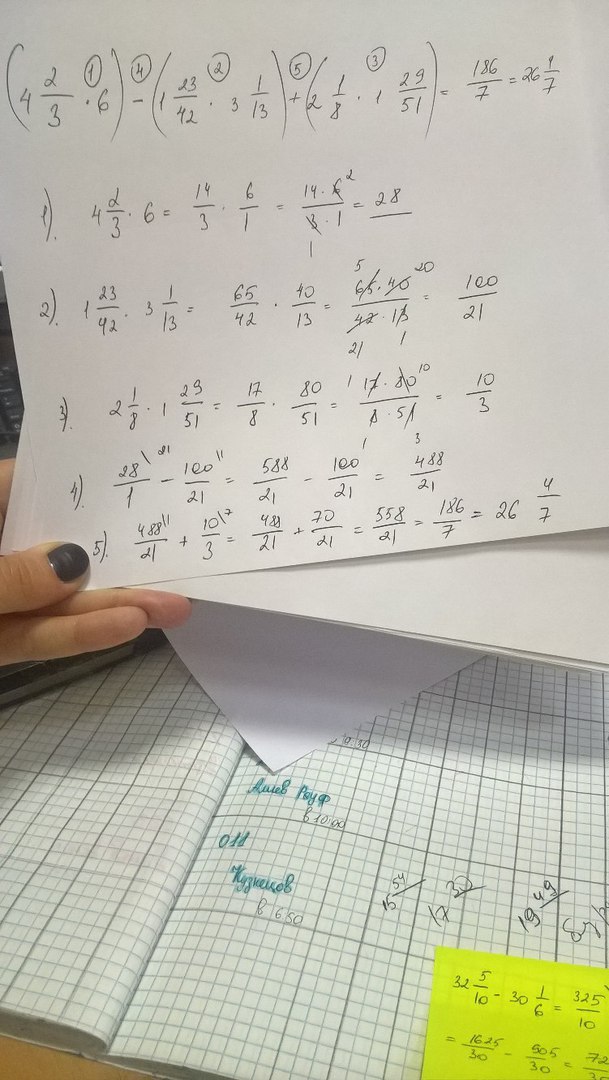 (4 2/3 · 6) - (1 23/42 · 3 1/13) + (2 1/8 · 1 29/51) = 186/7 = 26 4/7
① ④ ② ⑤ ③
1). 4 2/3 · 6 = 14/3 · 6/1 = 14·6/3·1 = 28
2). 1 23/42 · 3 1/13 = 65/42 · 40/13 = 65·40/42·13 = 100/21
3). 2 1/8 · 1 29/51 = 17/8 · 80/51 = 17·80/8·51 = 10/3
4). 28/1 - 100/21 = 588/21 - 100/21 = 488/21
5). 488/21 + 10/3 = 488/21 + 70/21 = 558/21 = 186/7 = 26 4/7
Алиев Рауф
в 10:00
011
Кузнецов
в 6:50
15 54
17 30
19 49
32 5/10 - 30 1/6 = 325/10
= 1625/30 - 505/30 =